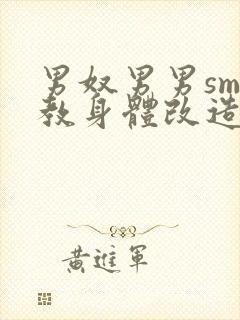 男奴男男sm
教身體改造
黃進軍